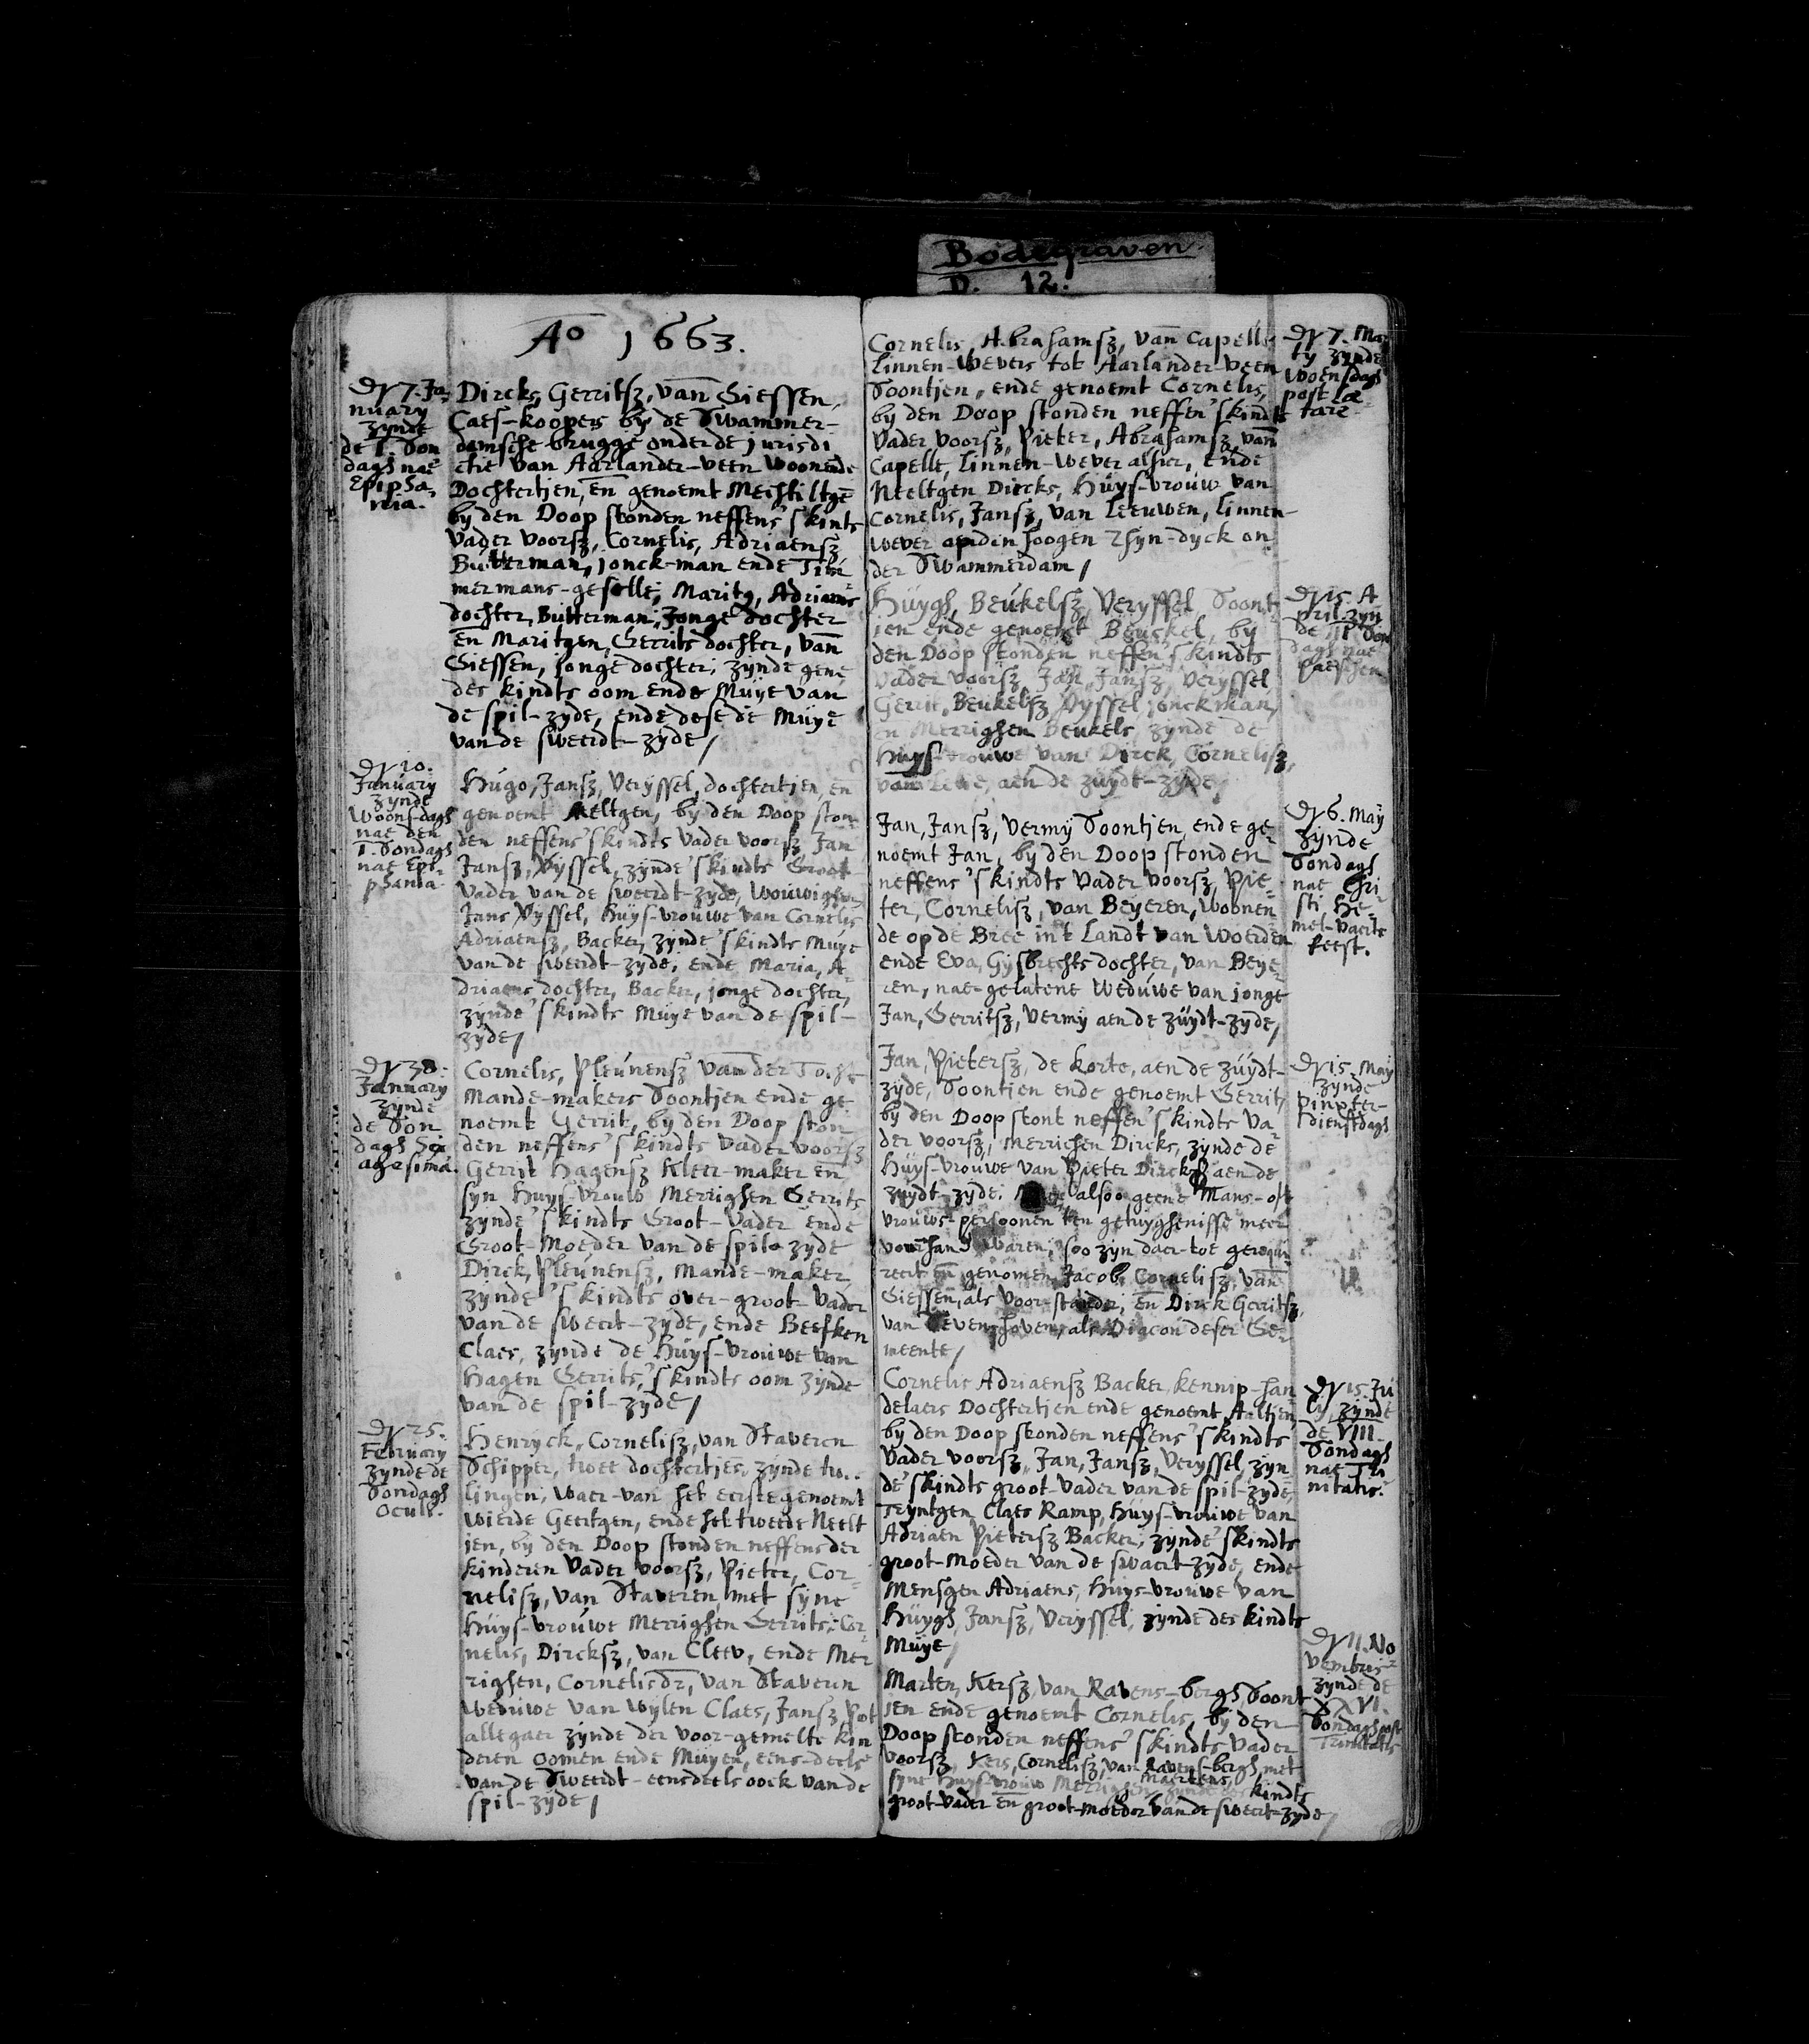 Bodegraven
D. 12.
Ao 1663.
Dy 7. Ja-
nuary
zynde
de I. Son
dagh nae
Epipha-
nia.
Dircks, Gerritsz, van Giessen,
Caes-koopers by de Swammer-
damsche-brugge onder de jurisdi
ctie van Aarlander-veen woonende
Dochtertjen, en genoemt Mechtiltgē
by den Doop stonden neffens 'skints
Vader voorsz, Cornelis, Adriaensz
Butterman, jonck-man ende Tim
mermans-geselle; Maritg, Adriaens
dochter, Butterman, Jonge dochter
en Maritgen, Gerrits dochter, van
Giessen, jonge dochter; zynde gene
des kindts oom ende Muye van
de spil-zyde, ende dese de Muye
van de sweerdt-zyde/
Dy 10.
January
zynde
Woons-dagh
nae den
I. Sondagh
nae Epi-
phania.
Hugo, Jansz, Veryssel, dochtertjen, en
genoemt Neltgen, by den Doop ston
den neffens 'skindts Vader voorsz Jan
Jansz, Vyssel, zynde 'skindts Groot
Vader van de sweerdt-zyde, Wouwighen
Jans Vyssel, Huys-vrouwe van Cornelis
Adriaensz, Backer, zynde 'skindts Muye
van de sweerdt-zyde; ende Maria, A-
driaens dochter, Backer, jonge dochter,
zynde 'skindts Muye van de spil-
zyde/
Dy
January
zynde
de Son
dagh Sex
agesima.
Cornelis, Pleunensz van der
Mande-makers Soontjen ende ge
noemt Gerrit, by den Doop ston
den neffens 'skindts Vader voorsz
Gerrit Hagensz Kleer-maker en
syn Huys-vrouw Merrighen Gerrits
zynde 'skindts Groot-Vader ende
Groot-Moeder van de spil-zyde
Dirck, Pleunensz, Mande-maker
zynde 'skindts over-groot-Vader
van de sweert-zyde, ende Beefken
Claes, zynde de Huys-vrouwe van
Hagen Gerrits, 'skindts oom zynde
van de spil-zyde/
Dy 25.
February
zynde de
Sondagh
Oculi.
Henryck, Cornelisz, van Staveren
Schipper, twee dochtertjes, zynde
lingen; waer-van het eerste genoemt
wierde Geertgen, ende het tweede Neelt
jen, by den Doop stonden neffens der
kinderen Vader voorsz, Pieter, Cor-
nelisz, van Staveren met syne
Huys-vrouwe Merrighen Gerrits; Cor-
nelis, Dircksz, van Cleev, ende Mer
righen, Cornelisdr, van Staveren
Weduwe van wylen Claes, Jansz, Pot
allegaer zynde der voor-gemelte kin
deren oomen ende Muyen, eens-deels
van de Sweerdt-eensdeels oock van de
spil-zyde/
Cornelis, Abrahamsz, van Capelle
Linnen-Wevers tot Aarlander-veen
Soontjen, ende genoemt Cornelis,
by den Doop stonden neffen 'skindts
Vader voorsz, Pieter, Abrahamsz, van
Capelle, Linnen-Wever alhier, ende
Neeltgen Dircks, Huys-vrouw van
Cornelis, Jansz, van Leeuwen, linnen-
wever op den hoogen Rhyn-dyck on
der Swammerdam/
Dy 7. Mar
ty zynde
Woensdagh
post Læ
tare
Huygh, Beukelsz, Veryssel, Soont
jen ende genoemt Beuckel, by
den Doop stonden neffen 'skindts
Vader voorsz, Jan, Jansz, Veryssel
Gerrit, Beukelsz Vyssel, jonckman,
en Merrighen Beukels, zynde de
Huys-vrouwe van Dirck, Cornelisz,
van aen de zuydt-zyde/
Dy 15. A
pril zyn
de III Son
dagh nae
Paeschen
Jan, Jansz, Vermy Soontjen, ende ge-
noemt Jan, by den Doop stonden
neffens 'skindts Vader voorsz, Pie-
ter, Cornelisz, van Beyeren, woonen-
de op de Bree in't Landt van Woerden
ende Eva, Gysbrechts dochter, van Beye-
ren, nae-gelatene Weduwe van jonge
Jan, Gerritsz, Vermy aen de zuydt-zyde/
Dy 6. May
zynde
Sondagh
nae Chri
sti He-
mel-vaerts
feest.
Jan, Pietersz, de korte, aen de zuydt-
zyde, Soontjen ende genoemt Gerrit,
by den Doop stont neffen 'skindts Va-
der voorsz, Merrichen Dircks, zynde de
Huys-vrouwe van Pieter Dircksz aen de
zuydt-zyde; alsoo geene Mans-oft
vrouws-persoonen ten getuyghenisse meer
voorhand waren, soo zyn daer-toe gerequi
reert en genomen Jacob, Cornelisz, van
Giessen, als voor-stander; en Dirck Gerritsz,
van als Diacon deser Ge-
meente/
Dy 15. May
zynde
pinxter-
dienstdagh
Cornelis Adriaensz Backer, kennip-han
delaers Dochtertjen ende genoemt Aaltjen,
by den Doop stonden neffens 'skindts
Vader voorsz, Jan, Jansz, Veryssel, zyn
de 'skindts groot-Vader van de spil-zyde,
Tryntgen Claes Ramp, Huys-vrouwe van
Adriaen Pietersz Backer; zynde 'skindts
groot-Moeder van de swaert-zyde, ende
Mensgen Adriaens, Huys-vrouwe van
Huygh, Jansz, Veryssel; zynde des kindts
Muye/
Dy 15. Ju
ly, zynde
de VIII.
Sondagh
nae Tri
nitatis.
Marten, Kersz, van Ravens-bergh, Soont
jen ende genoemt Cornelis, by den
Doop stonden neffens 'skindts Vader
voorsz, Kers, Cornelisz, van Ravens-bergh, met
syne Huys-vrouw Merrighen Maertens, zynde des kindts
groot-Vader en groot-moeder van de sweert-zyde/
Dy 11. No
vembris
zynde de
XXVI.
Sondagh post
Trinitatis